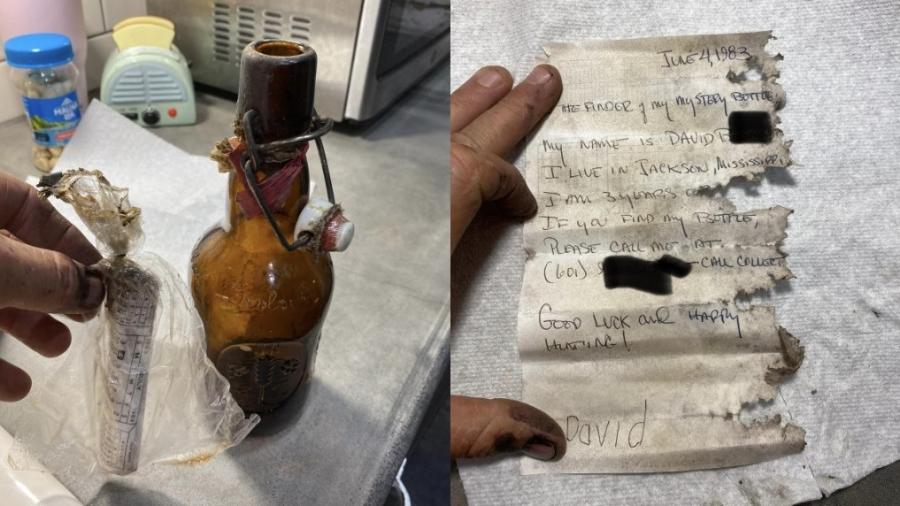 JUNE 4, 1983
THE FINDER of my MYSTERY BOTTLE,
MY NAME IS DAVID
I LIVE IN JACKSON, MISSISSIPPI,
I AM 3 YEARS
IF YOU FIND MY BOTTLE,
PLEASE CALL ME AT
(601) - CALL COLLECT
GOOD LUCK and HAPPY
HUNTING!
David